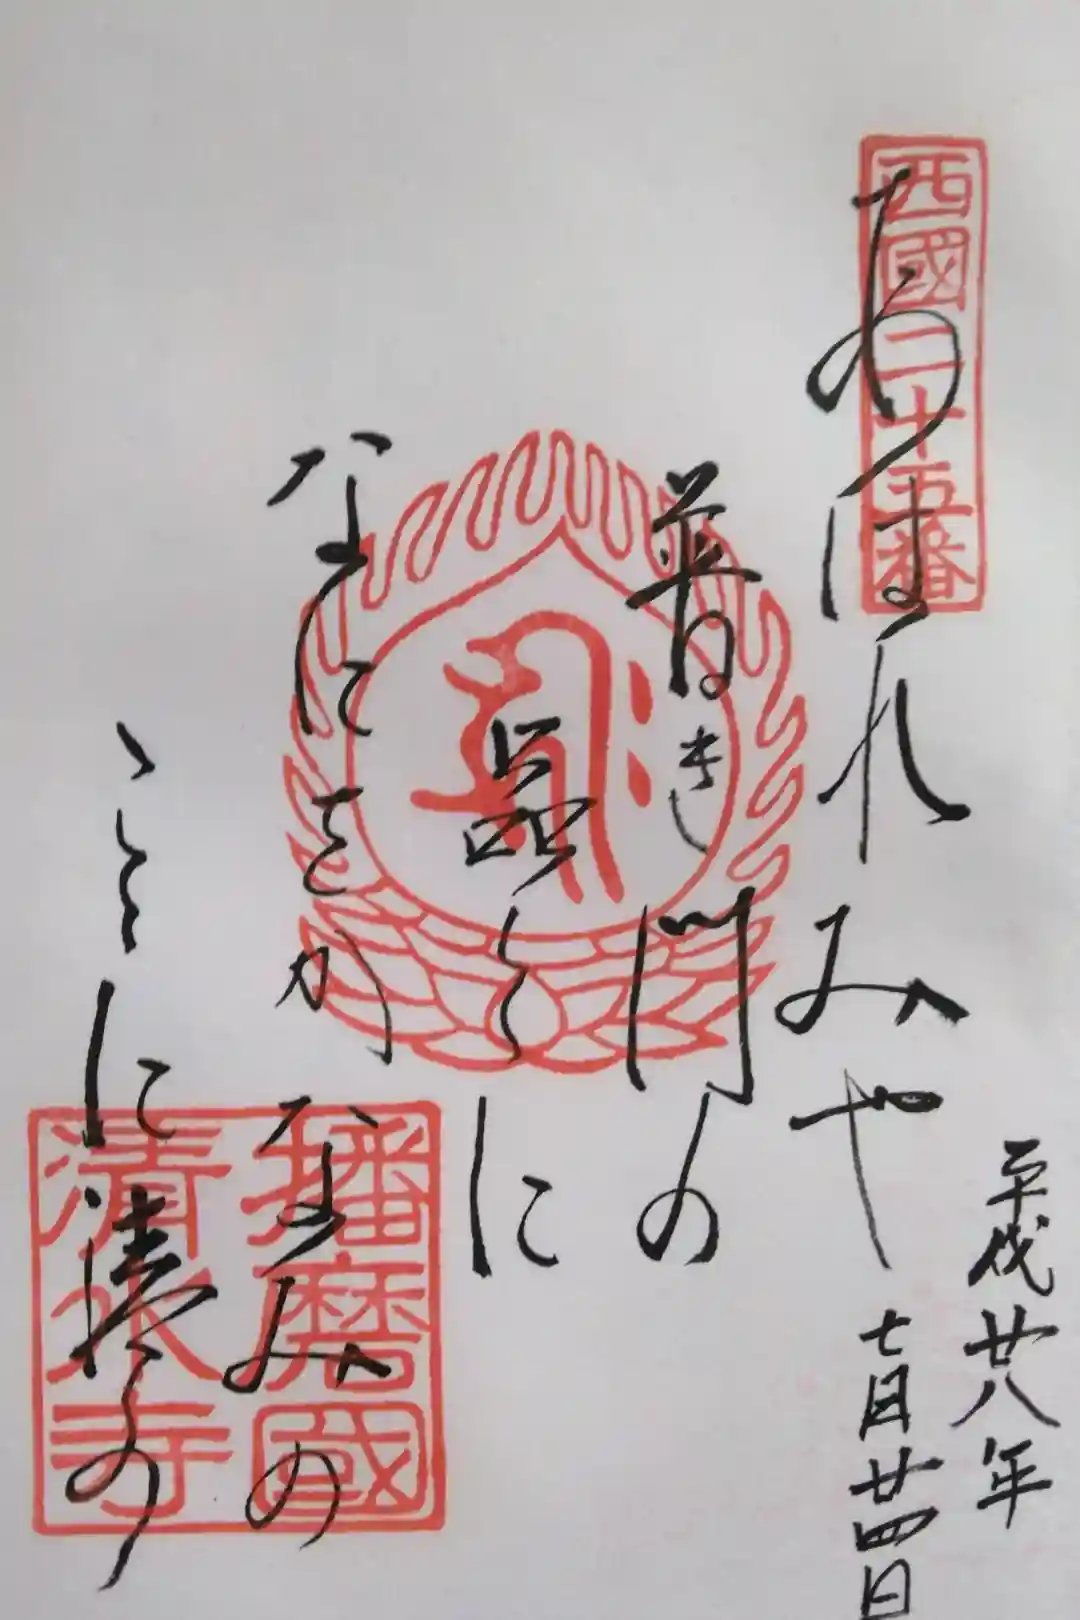 西國二十五番
平成廿八年
七月廿四日
あはれみや
普き門の
品々に
なにをかなみの
ここに清
播磨國
清水寺